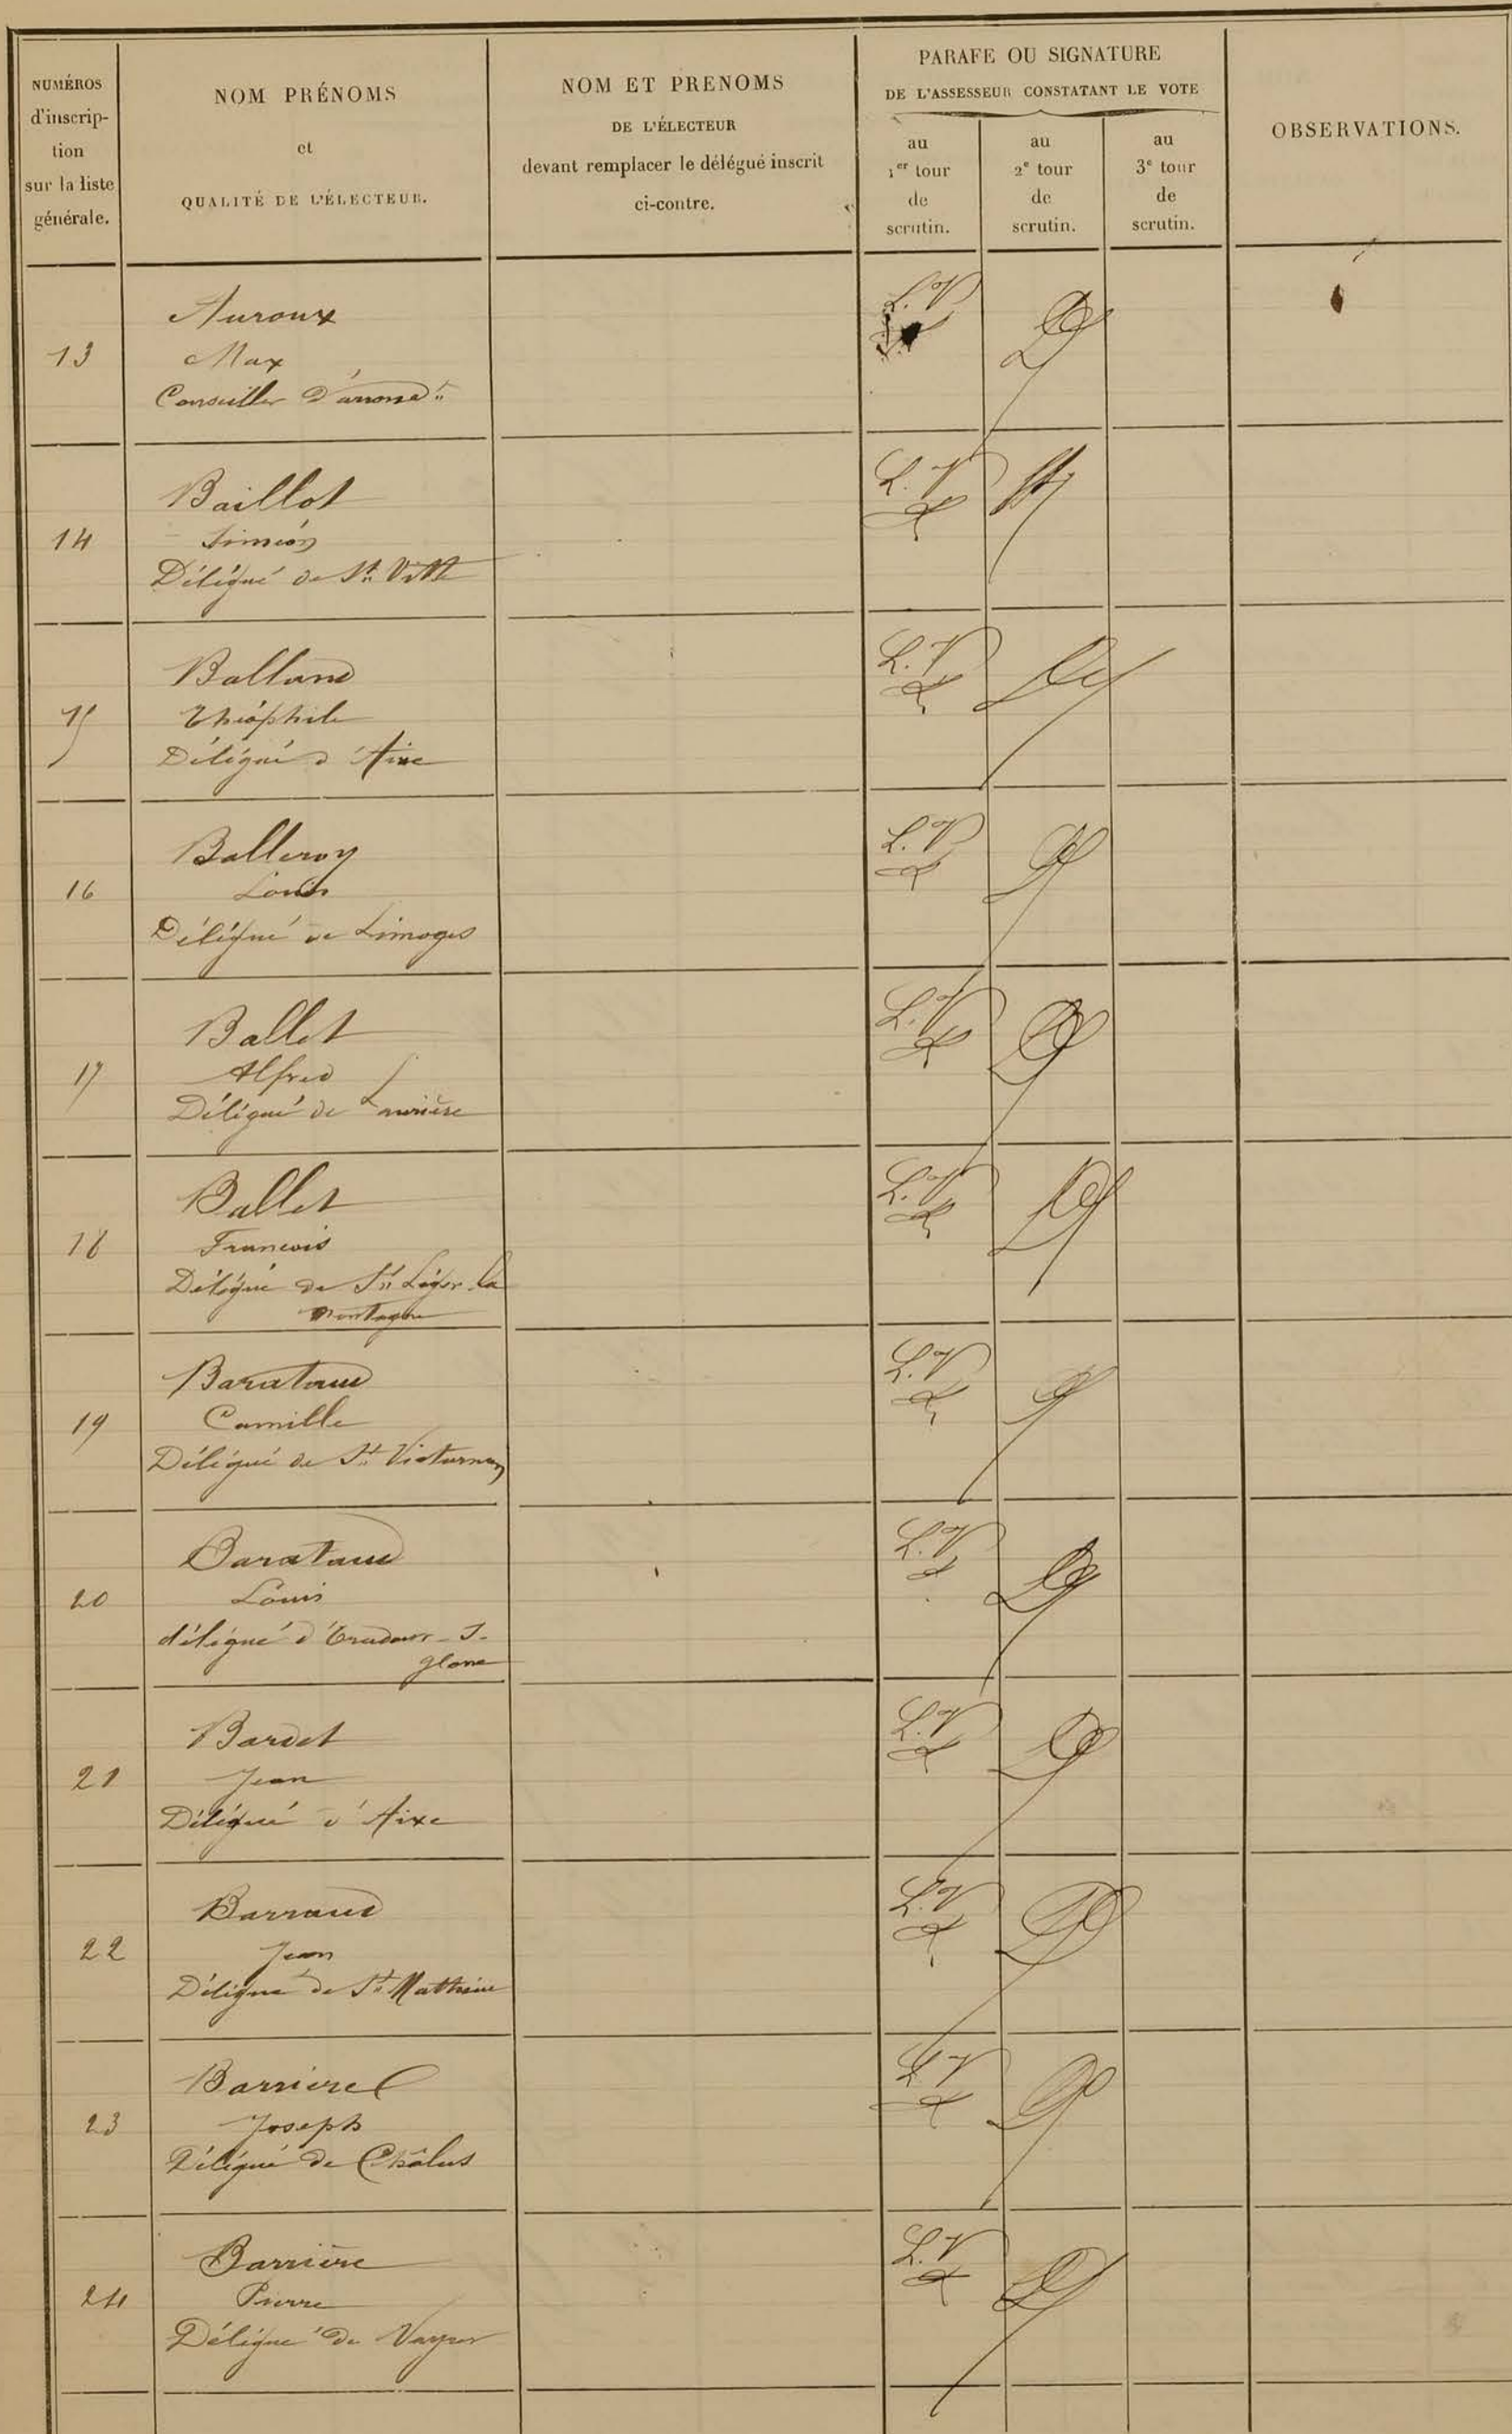 NUMÉROS
d'inscrip-
tion
sur la liste
générale.
NOM PRÉNOMS
et
QUALITÉ DE L'ÉLECTEUR.
NOM ET PRENOMS
DE L'ÉLECTEUR
devant remplacer le délégué inscrit
ci-contre.
PARAFE OU SIGNATURE
DE L'ASSESSEUR CONSTATANT LE VOTE
au
1er tour
de
scrutin.
au
2e tour
de
scrutin.
au
3e tour
de
scrutin.
OBSERVATIONS.
13
Auroux
Max
Conseiller d'arrondt
L. V
14
Baillot
Siméon
Délégué de St Vitte
L. V
15
Balland
Théophile
Délégué d'Aixe
L. V
16
Balleroy
Louis
Délégué de Limoges
L. V
17
Ballet
Alfred
Délégué de Laurière
L. V
18
Ballet
Francois
Délégué de St Léger la
montagne
L. V
19
Barataud
Camille
Délégué de St Victurnien
L. V
20
Barataud
Louis
délégué d'Oradour-s-
glane
L. V
21
Bardet
Jean
Délégué d'Aixe
L. V
22
Barraud
Jean
Délégué de St Mathieu
L. V
23
Barriere
Joseph
Délégué de Châlus
L. V
24
Barrière
Pierre
Délégué de Vayres
L. V